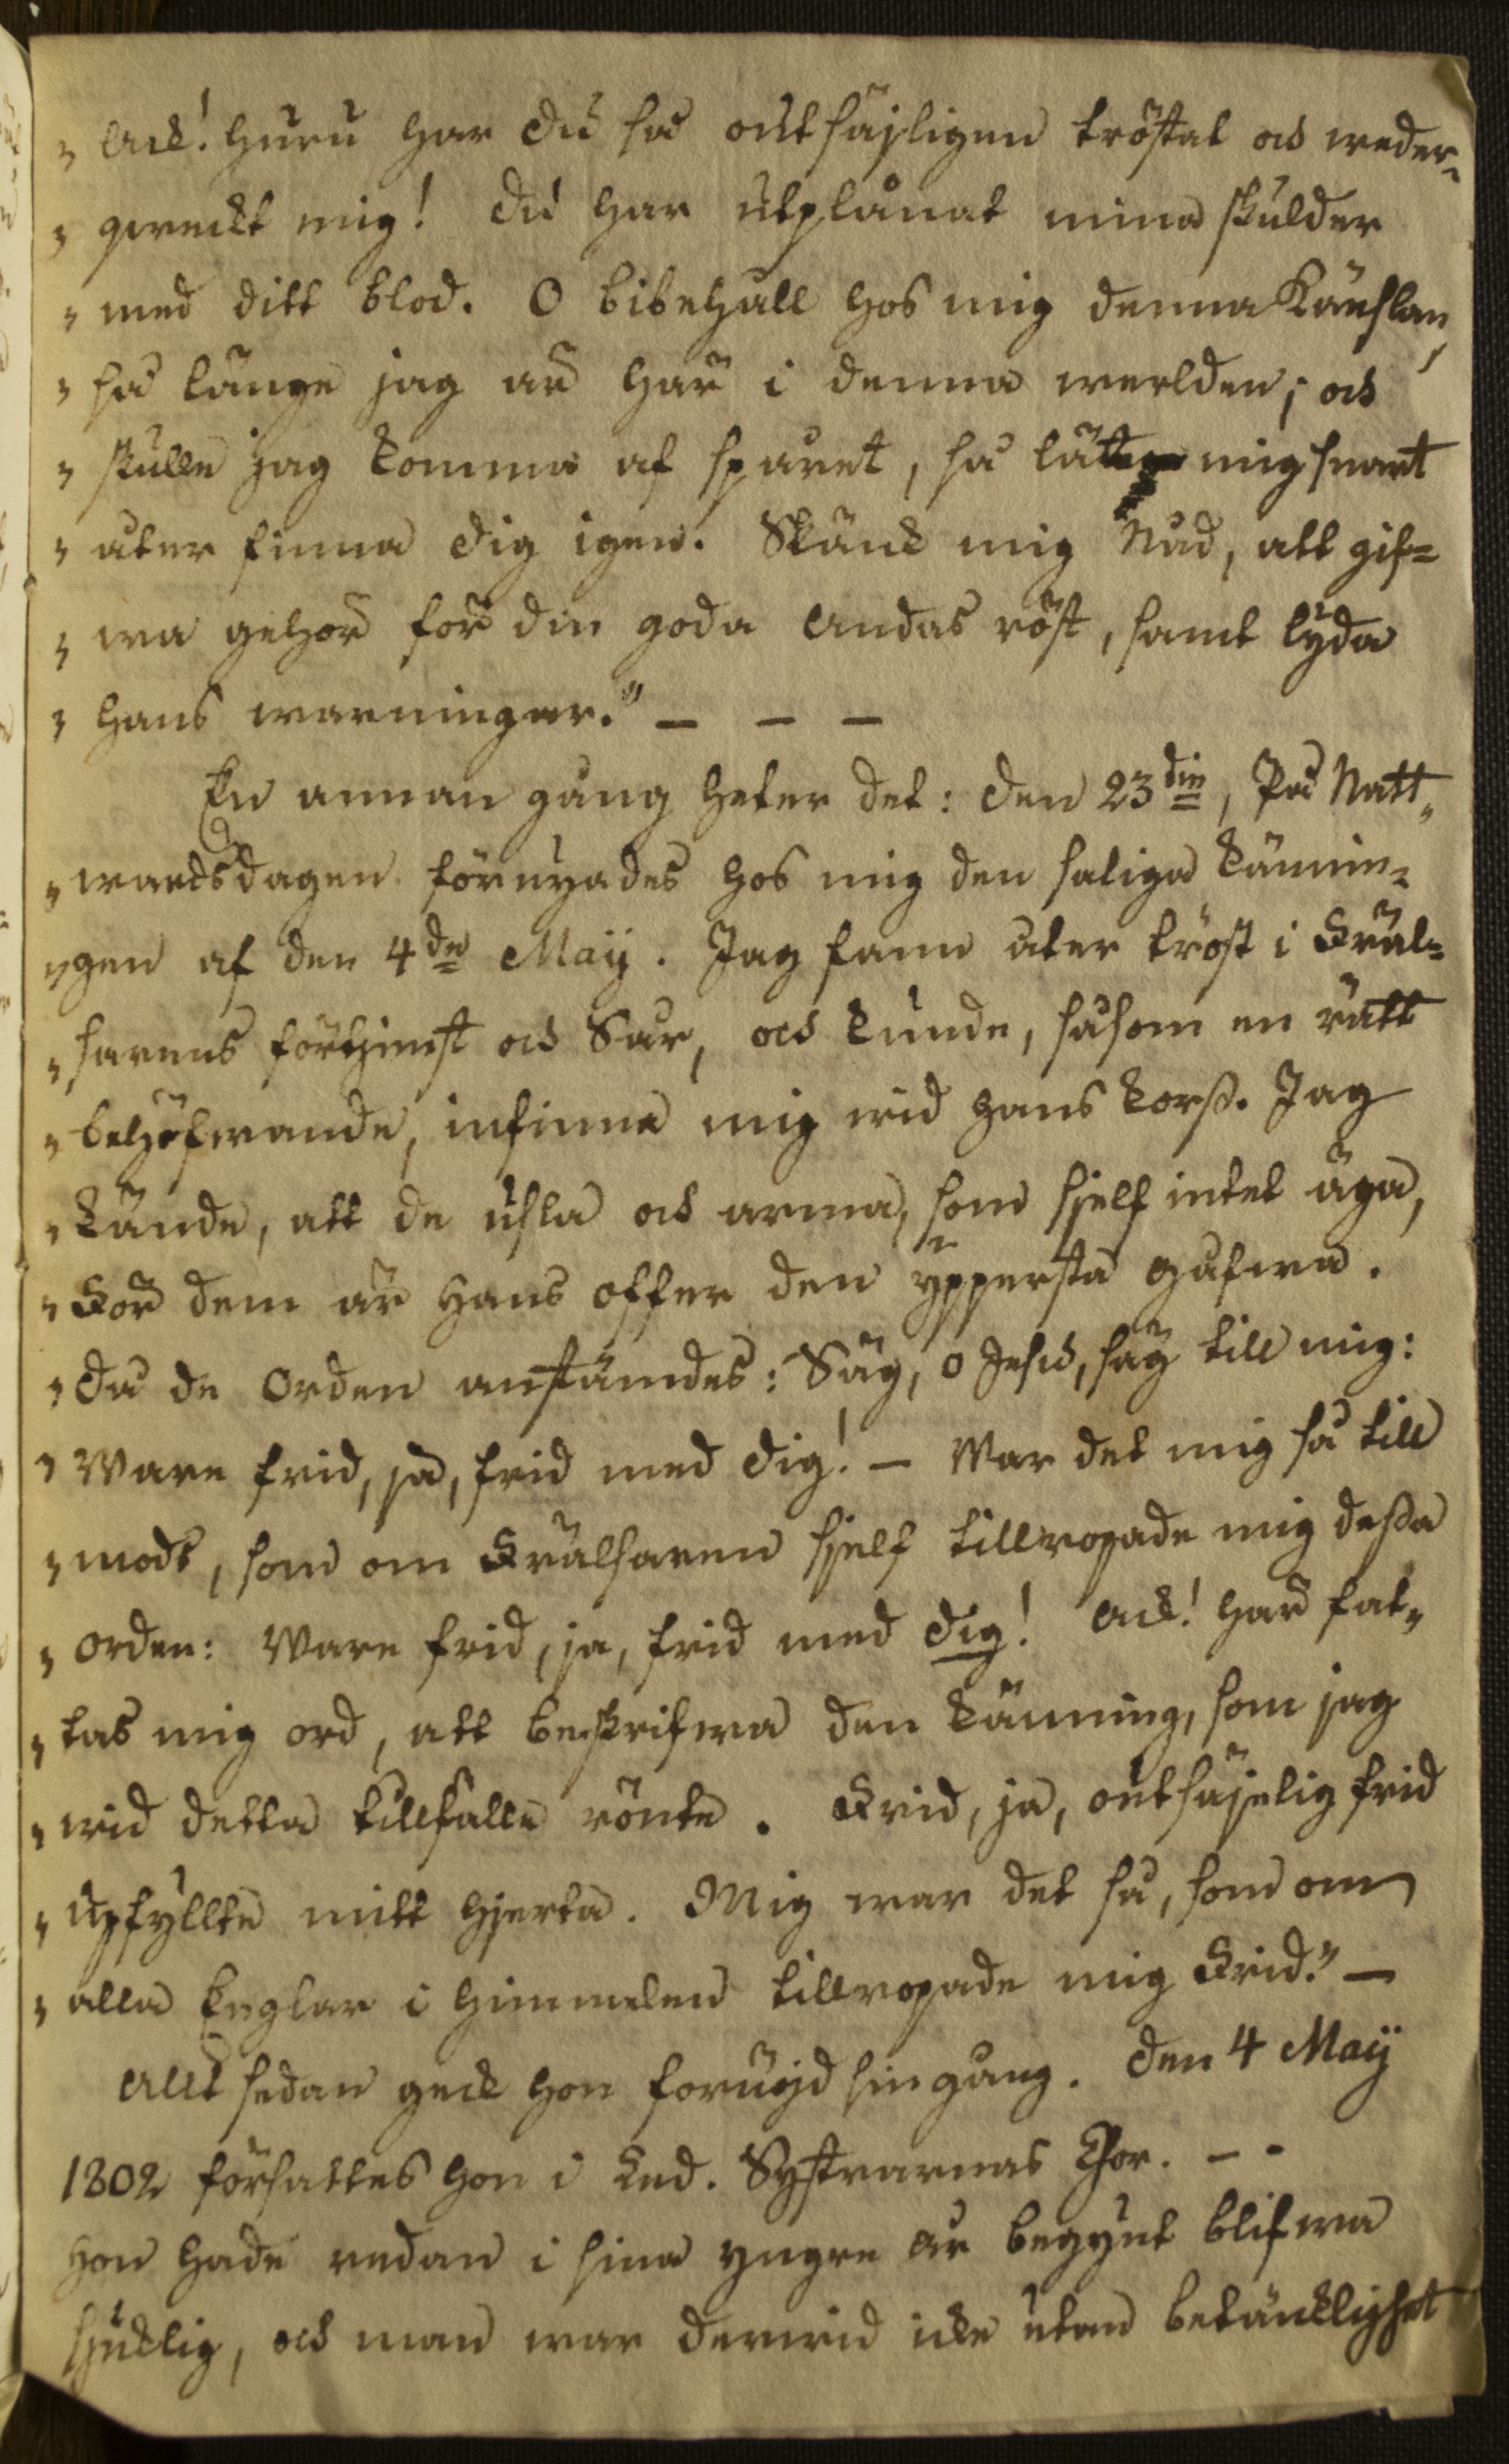 „ Ack! huru har du så outsäjligen tröstat och weder„
„ qweckt mig! Du har utplånat mina skulder
„ med ditt blod. O bibehåll hos mig denna Känslan,
„ så länge jag är här i denna werlden; och
„ skulle jag komma af spåret, så lätt mig snart
„ åter finna dig igen. Skänk mig Nåd, att gif=
„ wa gehör för din goda Andas röst, samt lyda
„ hans warningar." — — —
En annan gång heter det: Den 23din, På Natt„
„ wardsdagen förnyades hos mig den saliga kännin=
„ gen af den 4de Maij. Jag fann åter tröst i Fräl=
„ sarens förtjenst och Sår, och kunde, såsom en rätt
„ behöfwande, infinna mig wid hans korß. Jag
„ kände, att de usla och arma, som sjelf intet äga,
„ För dem är Hans offer den yppersta gåfwa.
„ Då de Orden anstämdes: Säg, o Jesu, säg till mig:
„ Ware frid, ja, frid med dig! — War det mig så till
„ mods, som om Frälsaren sjelf tillropade mig deßa
„ orden: Ware frid, ja, frid med dig! Ack! här fat„
„ tas mig ord, att beskrifwa den känning, som jag
„ wid detta tillfälle rönte. Frid, ja, outsäjelig frid
„ upfyllte mitt hjerta. Mig war det så, som om
„ alla Englar i himmelen tillropade mig Frid." —
Allt sedan geck hon förnöjd sin gång. Den 4 Maij
1802 försattes hon i Led. Systrarnas Chor. – -
Hon hade redan i sina yngre år begynt blifwa
sjuklig, och man war derwid icke utan betänklighet